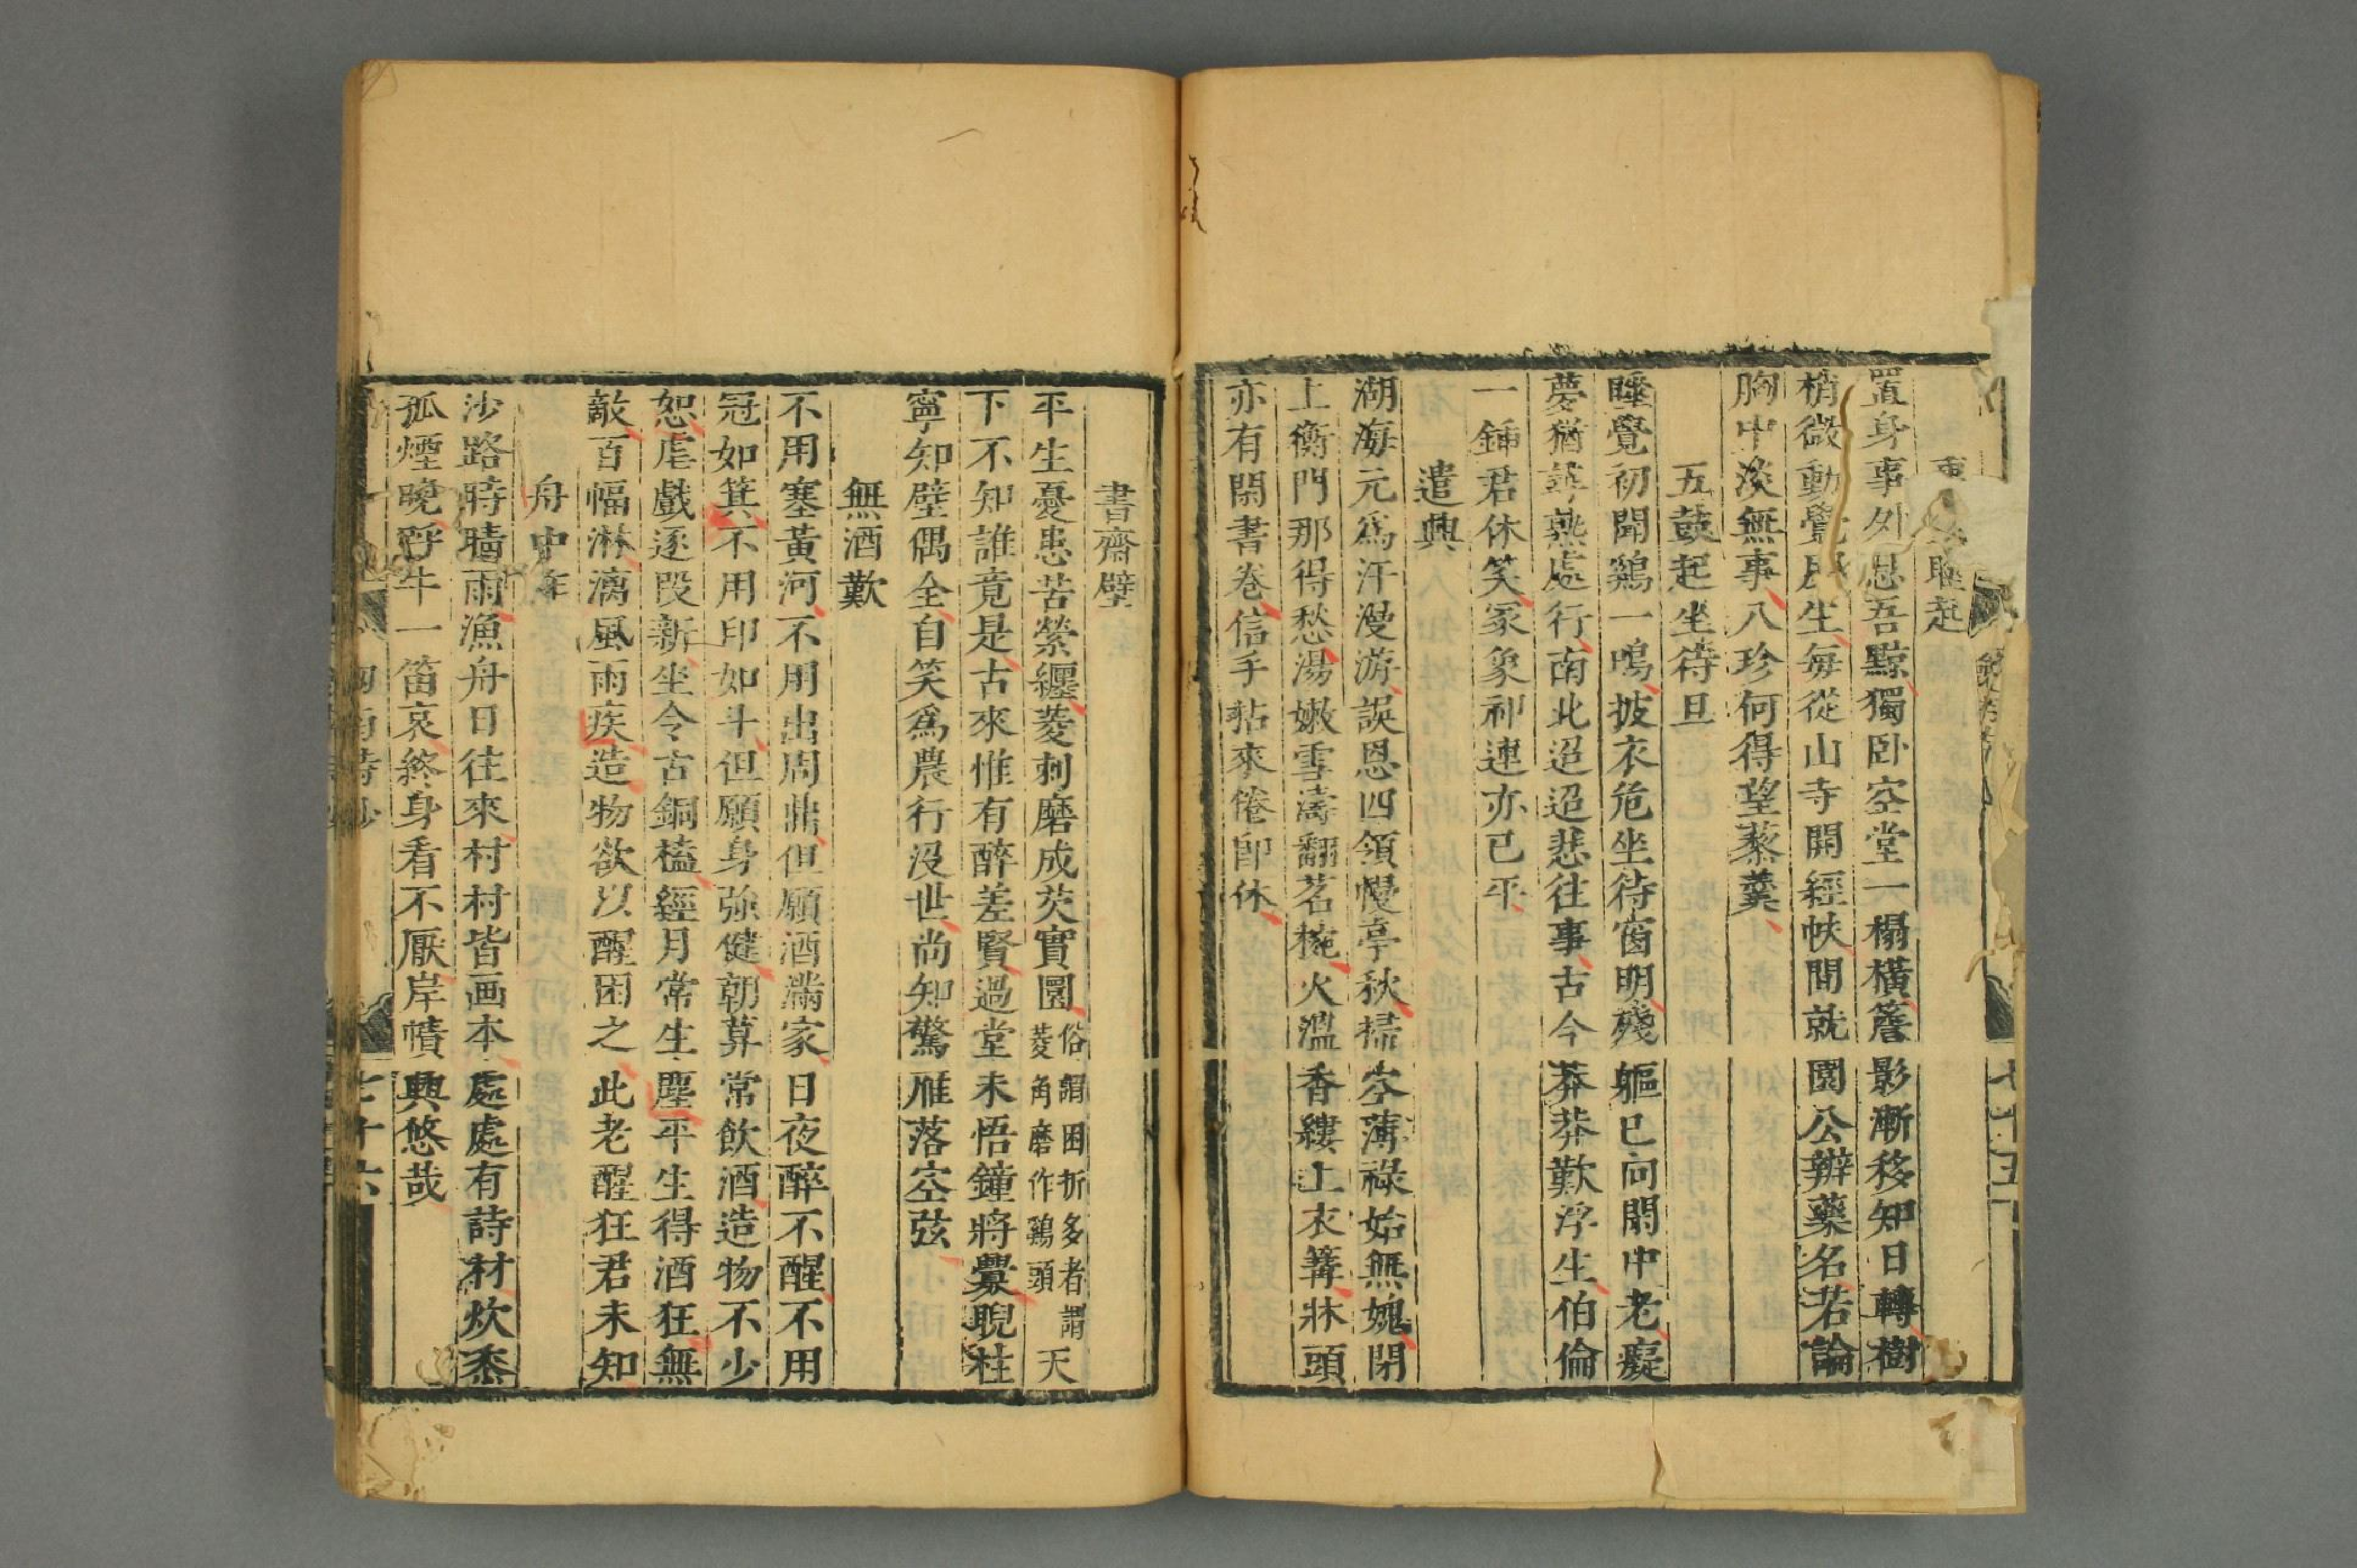 睡起
置身事外息吾黥獨卧空堂一榻橫簷影漸移知日轉樹
梢微動覺風生每從山寺開經帙間就園公辨藥名若論
胸中淡無事八珍何得望藜羹
五鼓起坐待旦
睡覺初聞鷄一鳴披衣危坐待窗明殘軀已向閒中老癡
夢猶尋熟處行南北迢迢悲往事古今莽莽歎浮生伯倫
一鍤君休笑冢象祁連亦已平
遣興
湖海元爲汗漫游誤恩四領幔亭秋掃空薄祿始無媿閉
上衡門那得愁湯嫩雪濤翻茗椀火溫香縷上衣篝牀頭
亦有閑書卷信手拈來倦卽休
七十五
書齋壁
平生憂患苦縈纏菱刺磨成芡實圓俗謂困折多者謂菱角磨作鷄頭天
下不知誰竟是古來惟有醉差賢過堂未悟鐘將釁睨柱
寧知璧偶全自笑爲農行没世尚知驚雁落空弦
無酒歎
不用塞黃河不用出周鼎但願酒滿家日夜醉不醒不用
冠如箕不用印如斗但願身強健朝莫常飲酒造物不少
恕虐戲逐段新坐令古銅榼經月常生塵平生得酒狂無
敵百幅淋漓風雨疾造物欲以醒困之此老醒狂君未知
舟中作
沙路時晴雨漁舟日往來村村皆画本處處有詩材炊黍
孤煙晚呼牛一笛哀終身看不厭岸幘興悠哉
劍南詩鈔
七十六